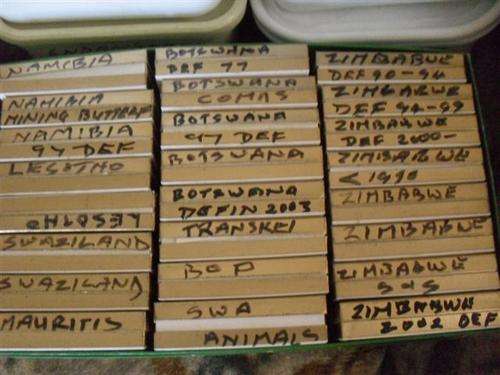 NAMIBIA
NAMIBIA
MINING BUTTERF
NAMIBIA
97 DEF
LESOTHO
LESOTHO
SWAZILAND
SWAZILAND
MAURITIS
BOTSWANA
DEF 77
BOTSWANA
COMMS
BOTSWANA
97 DEF
BOTSWANA
BOTSWANA
DEFIN 2003
TRANSKEI
BOP
SWA
ANIMALS
ZIMBABWE
DEF 90-94
ZIMBABWE
DEF 94-99
ZIMBABWE
DEF 2000-
ZIMBABWE
< 1990
ZIMBABWE
ZIMBABWE
ZIMBABWE
ZIMBABWE
2002 DEF